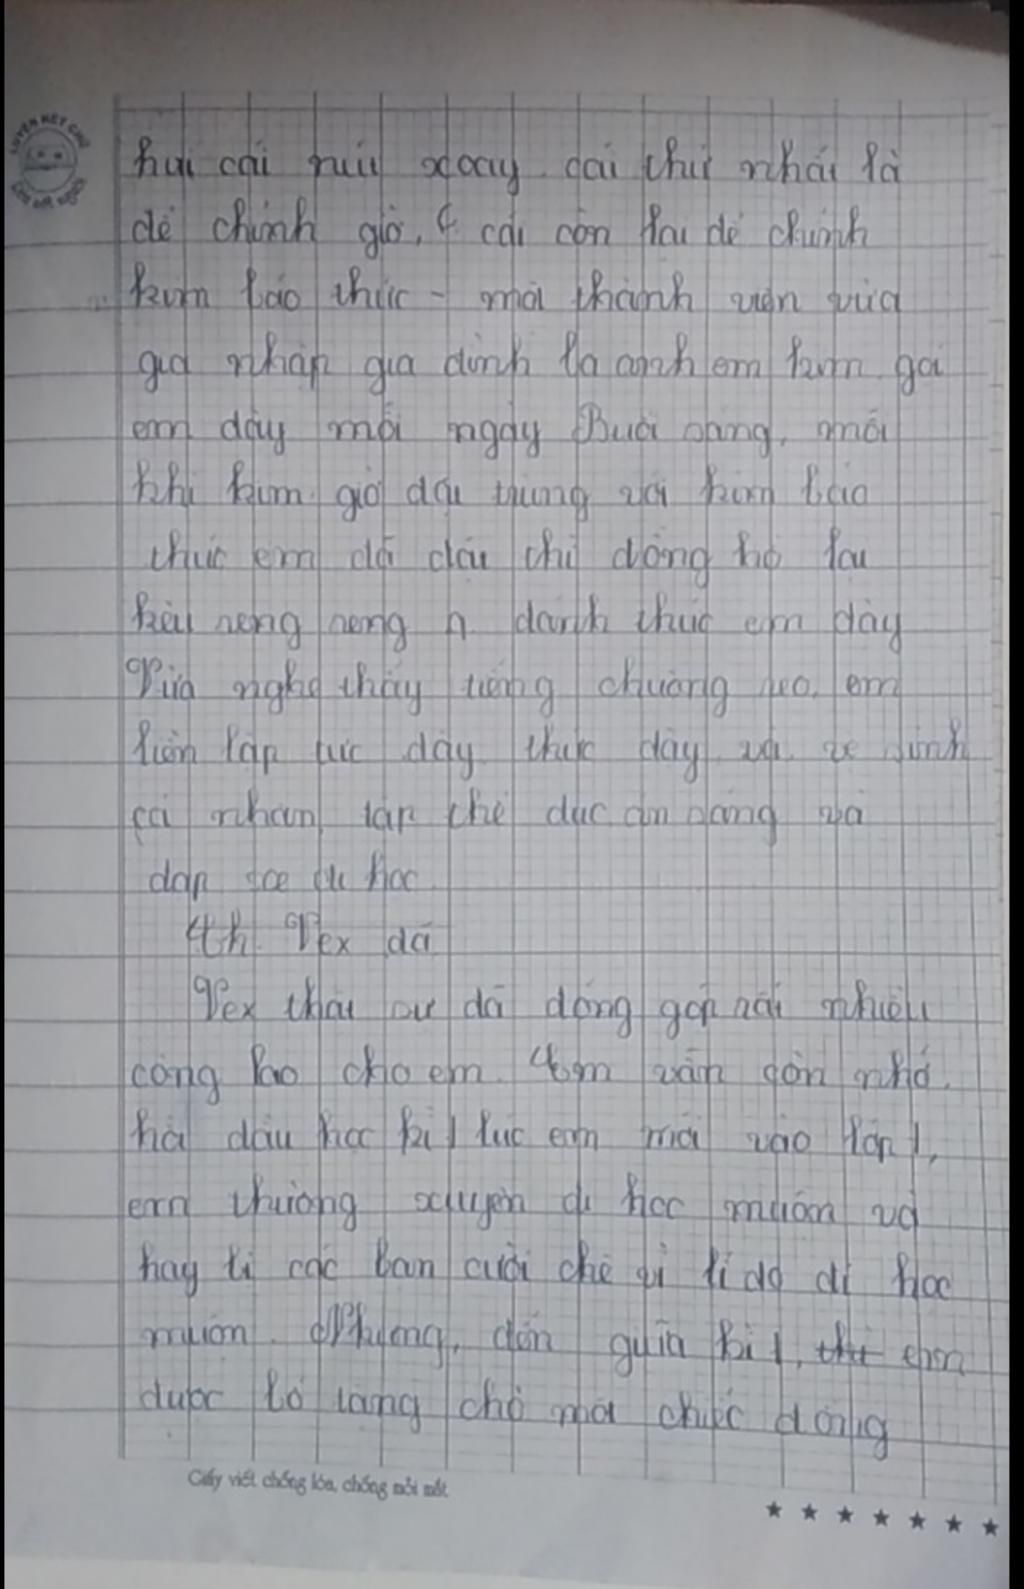 hai cái nút xoay cái thứ nhất là
để chỉnh giờ, cái còn lại để chỉnh
kim báo thức - một thành viên vừa
gia nhập gia đình là anh em kim gọi
em dậy mỗi ngày Buổi sáng, mỗi
khi kim giờ đậu trùng với kim báo
thức em đã đấu chỉ đồng hồ lại
kêu reng reng đánh thức em dậy
Vừa nghe thấy tiếng chuông reo, em
liền lập tức dậy thức dậy và vệ sinh
cá nhân, tập thể dục ăn sáng và
đạp xe đi học
Vex đã
Vex thật sự đã đóng góp rất nhiều
công lao cho em. Em vẫn còn nhớ
hồi đầu học kì 1 lúc em mới vào lớp 1,
em thường xuyên đi học muộn và
hay bị các bạn cười chê vì lí do đi học
muộn. Nhưng, đến giữa kì 1, thì em
được bố tặng cho một chiếc đồng
Giấy viết chống lóa, chống mỏi mắt